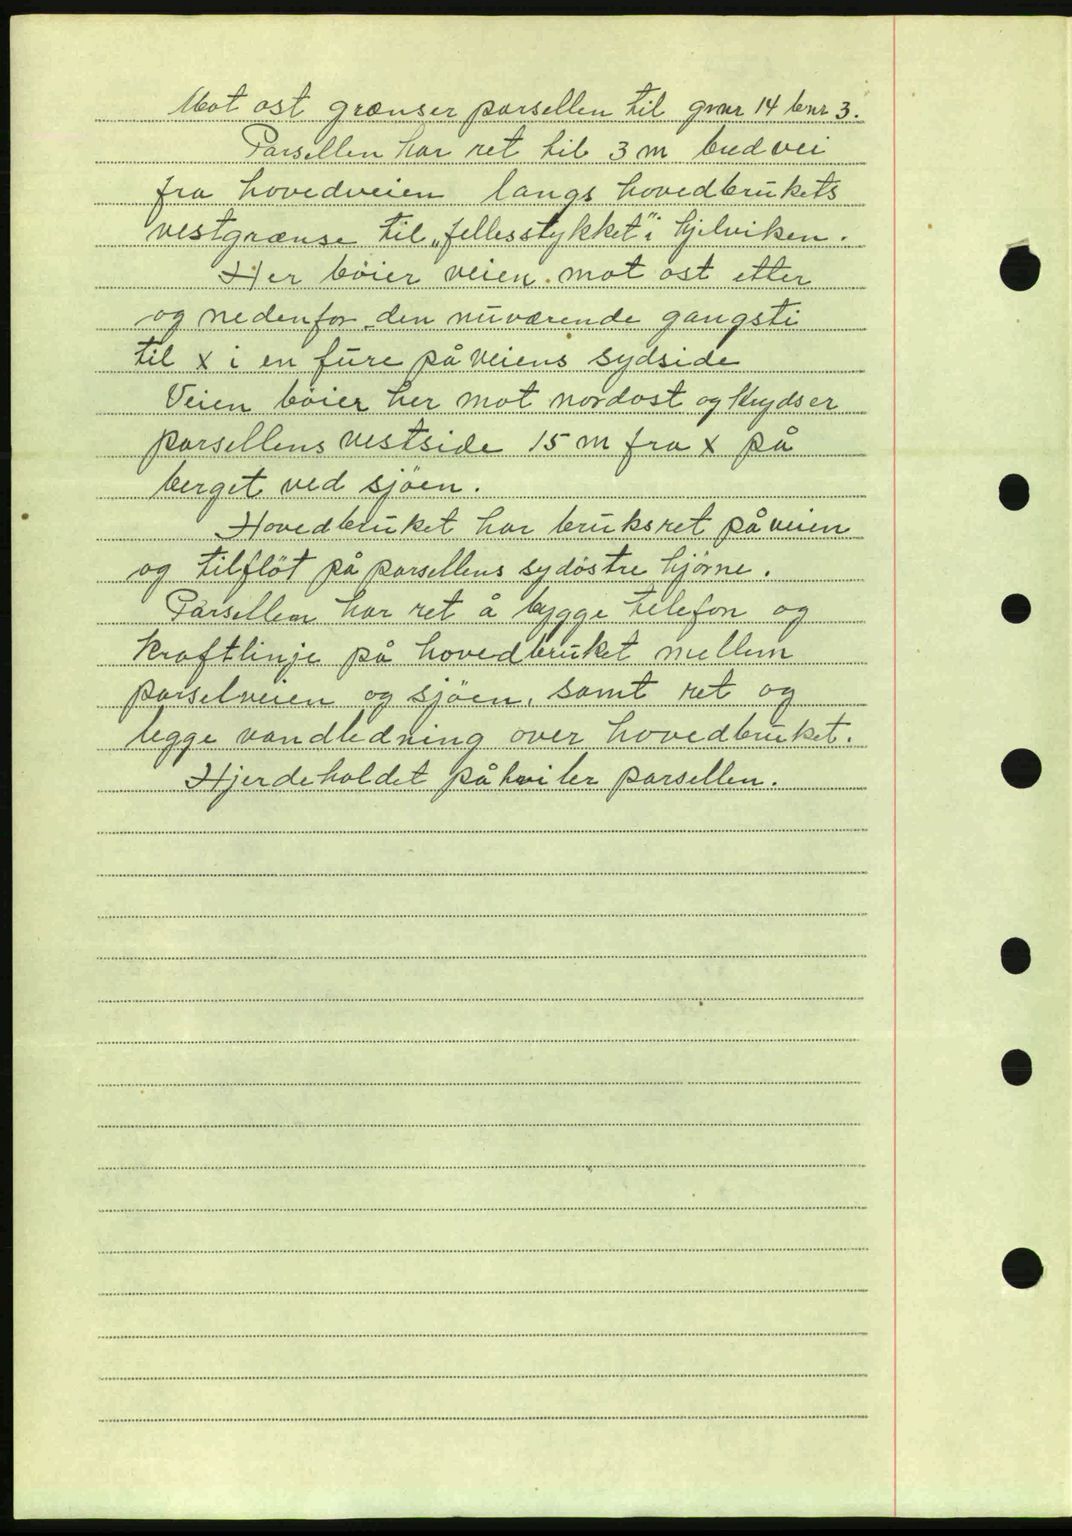 Mot ost grænser parsellen til gnr 14 bnr 3.
Parsellen har ret til 3 m bred vei
fra hovedveien langs hovedbrukets
vestgrænse til „fellesstykket" i Hjelviken.
Her bøier veien mot ost etter
og nedenfor den nuværende gangsti
til x i en fure på veiens sydside
Veien bøier her mot nordost og krydser
parsellens vestside 15 m fra x på
berget ved sjöen.
Hovedbruket har bruksret på veien
og tilflöt på parsellens sydöstre hjörne.
Parsellen har ret å bygge telefon og
kraftlinje på hovedbruket mellem
parselveien og sjöen, samt ret og
legge vandledning over hovedbruket.
Hjerdeholdet påhviler parsellen.